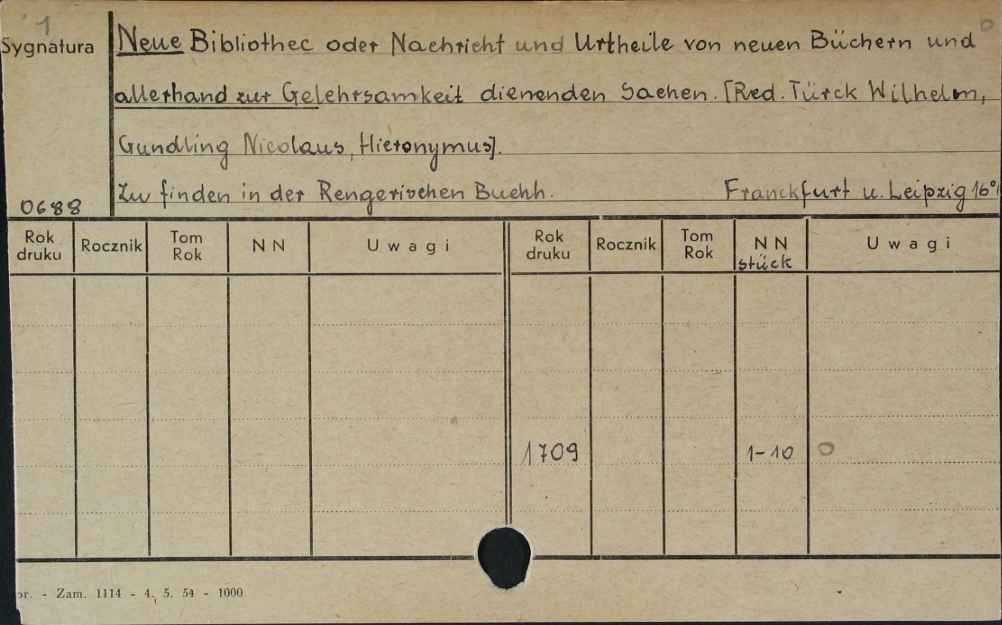 1
Sygnatura
Neue Bibliothec oder Nachricht und Urtheile von neuen Büchern und
allerhand zur Gelehrsamkeit dienenden Sachen. [Red. Türck Wilhelm,
Gundling Nicolaus, Hieronymus].
Zu finden in der Rengerischen Buchh. Franckfurt u. Leipzig
0688
Rok druku Rocznik Tom Rok NN Uwagi Rok druku Rocznik Tom Rok NN stück Uwagi
1709 1-10 0
- Zam. 1114 - 4. 5. 54 - 1000